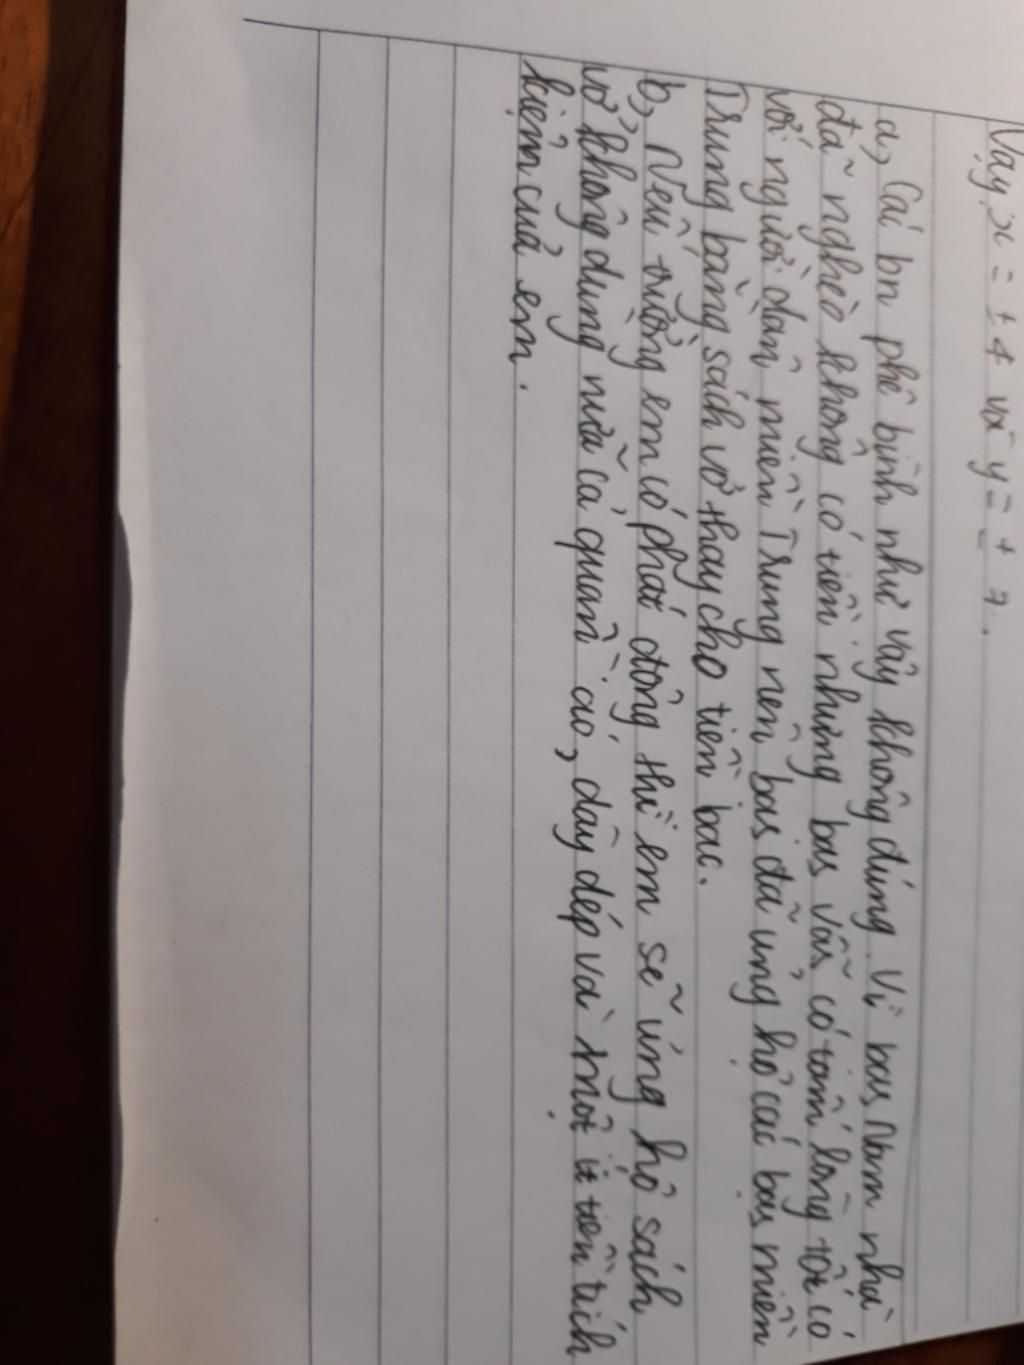 Vậy x = ± 4 và y = ± 7.
a, Các bn phê bình như vậy không đúng. Vì bạn Nam nhà
đã nghèo không có tiền nhưng bạn vẫn có tấm lòng tốt có
với người dân miền Trung nên bạn đã ủng hộ các bạn miền
Trung bằng sách vở thay cho tiền bạc.
b, Nếu trường em có phát động thì em sẽ ủng hộ sách
vở không dùng nữa cả quần áo, dày dép và một ít tiền tích
kiệm của em.